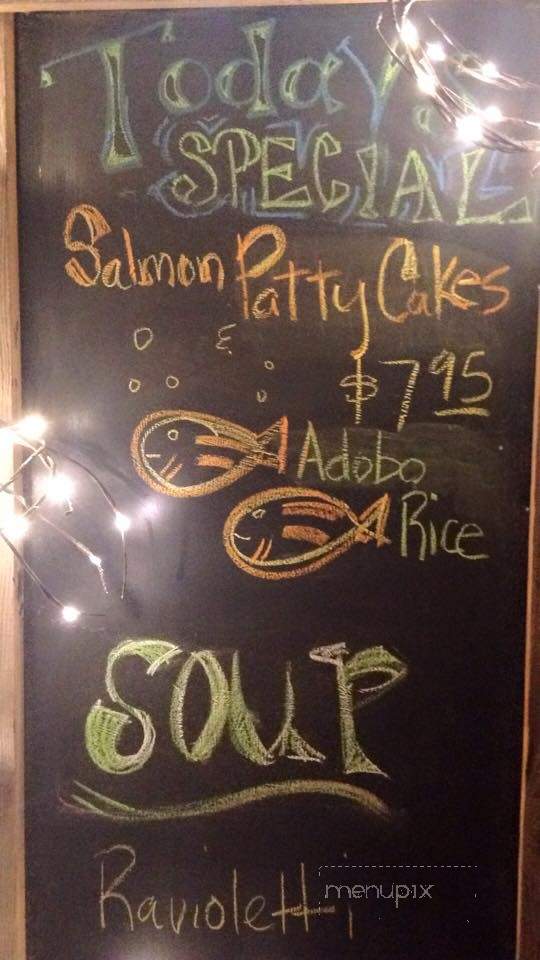 Today's
SPECIAL
Salmon Patty Cakes
&
$7.95
Adobo
Rice
SOUP
Ravioletti
menupix